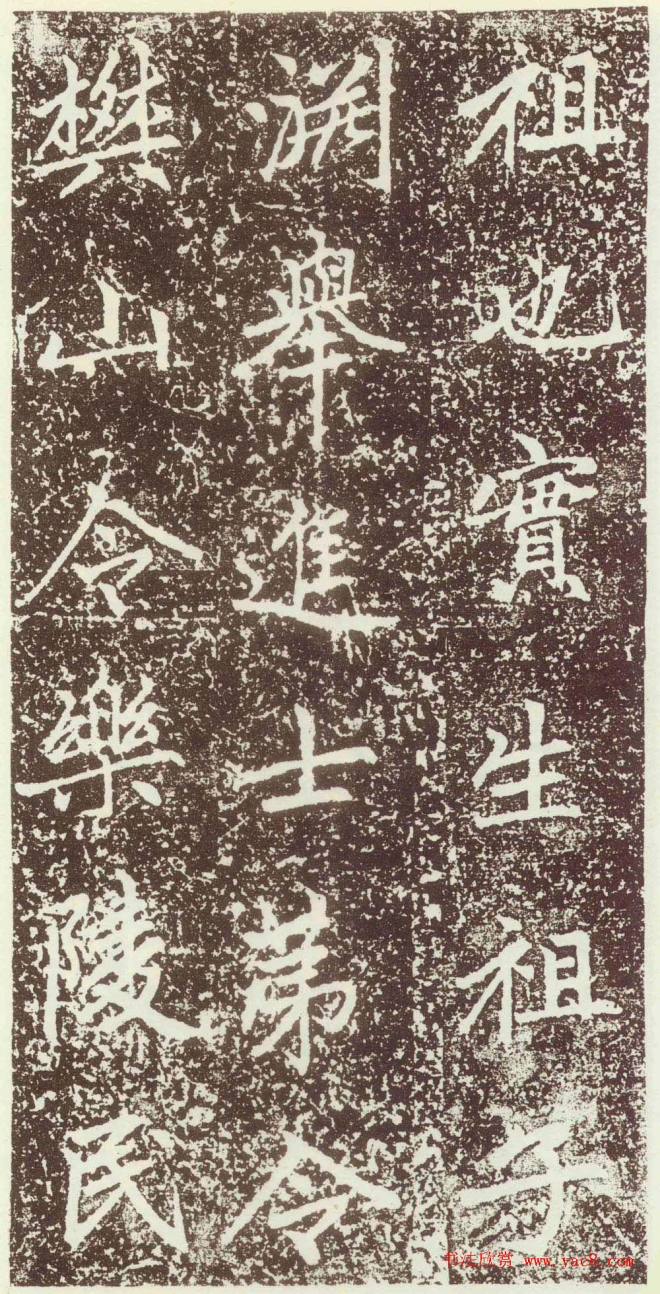 祖也實生祖子
淵舉進士第令
樊山令樂陵民
书法欣赏 www.yac8.com